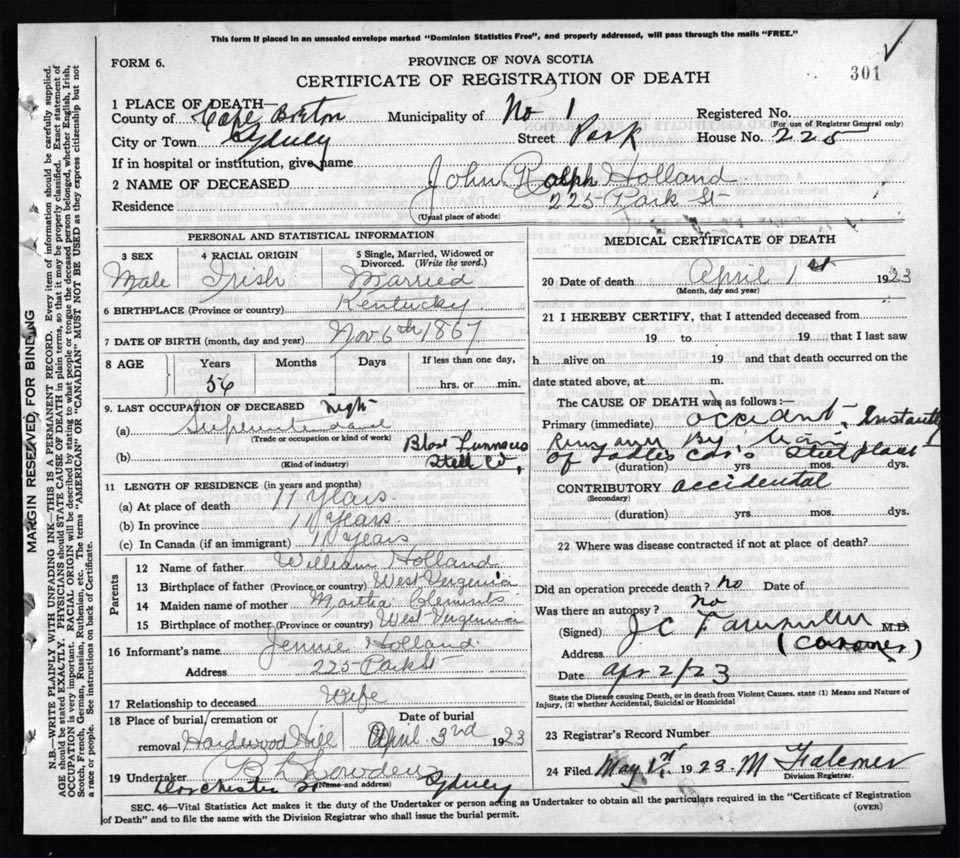 This form if placed in an unsealed envelope marked "Dominion Statistics Free", and properly addressed, will pass through the mails "FREE."
FORM 6.
PROVINCE OF NOVA SCOTIA
CERTIFICATE OF REGISTRATION OF DEATH
301
1 PLACE OF DEATH—
County of Cape Breton Municipality of No 1 Registered No.
(For use of Registrar General only)
City or Town Sydney Street Park House No. 225
If in hospital or institution, give name
2 NAME OF DECEASED John Ralph Holland
Residence 225 Park St
(Usual place of abode)
PERSONAL AND STATISTICAL INFORMATION
3 SEX 4 RACIAL ORIGIN 5 Single, Married, Widowed or Divorced. (Write the word.)
Male Irish Married
6 BIRTHPLACE (Province or country) Kentucky
7 DATE OF BIRTH (month, day and year) Nov 6th 1867
8 AGE Years Months Days If less than one day,
56 hrs. or min.
9. LAST OCCUPATION OF DECEASED
(a) Night Superintendant
(Trade or occupation or kind of work)
(b) Blast Furnaces Steel Co,
(Kind of industry)
11 LENGTH OF RESIDENCE (in years and months)
(a) At place of death 11 Years.
(b) In province 11 Years.
(c) In Canada (if an immigrant) 11 Years
Parents
12 Name of father William Holland
13 Birthplace of father (Province or country) West Verginia
14 Maiden name of mother Martha Clements
15 Birthplace of mother (Province or country) West Verginia
16 Informant's name Jennie Holland
Address 225 Park St
17 Relationship to deceased Wife
18 Place of burial, cremation or removal Hardwood Hill
Date of burial April 3rd 1923
19 Undertaker
(Name and address)
Dorchester St Sydney
MEDICAL CERTIFICATE OF DEATH
20 Date of death April 1st 1923
(Month, day and year)
21 I HEREBY CERTIFY, that I attended deceased from
19 to 19 that I last saw
h alive on 19 and that death occurred on the
date stated above, at m.
The CAUSE OF DEATH was as follows:—
Primary (immediate) accident, Instantly
Run over By train
of Ladles Cars Steel plant
(duration) yrs. mos. dys.
CONTRIBUTORY accidental
(Secondary)
(duration) yrs. mos. dys.
22 Where was disease contracted if not at place of death?
Did an operation precede death? no Date of
Was there an autopsy? no
(Signed) J C M.D.
Address (coroner)
Date Apr 2/23
State the Disease causing Death, or in death from Violent Causes, state (1) Means and Nature of
Injury, (2) whether Accidental, Suicidal or Homicidal
23 Registrar's Record Number
24 Filed May 1923 M Falconer
Division Registrar.
SEC. 46—Vital Statistics Act makes it the duty of the Undertaker or person acting as Undertaker to obtain all the particulars required in the "Certificate of Registration
of Death" and to file the same with the Division Registrar who shall issue the burial permit.
(OVER)
MARGIN RESERVED FOR BINDING
N.B.—WRITE PLAINLY WITH UNFADING INK—THIS IS A PERMANENT RECORD. Every item of information should be carefully supplied.
AGE should be stated EXACTLY. PHYSICIANS should STATE CAUSE OF DEATH in plain terms, so that it may be properly classified. Exact statement of
OCCUPATION is very important. RACIAL ORIGIN will be described by stating to what people or tongue the deceased person belonged, whether English, Irish,
Scotch, French, German, Russian, Ruthenian, etc. The terms "AMERICAN" OR "CANADIAN" MUST NOT BE USED as they express citizenship but not
a race or people. See instructions on back of Certificate.